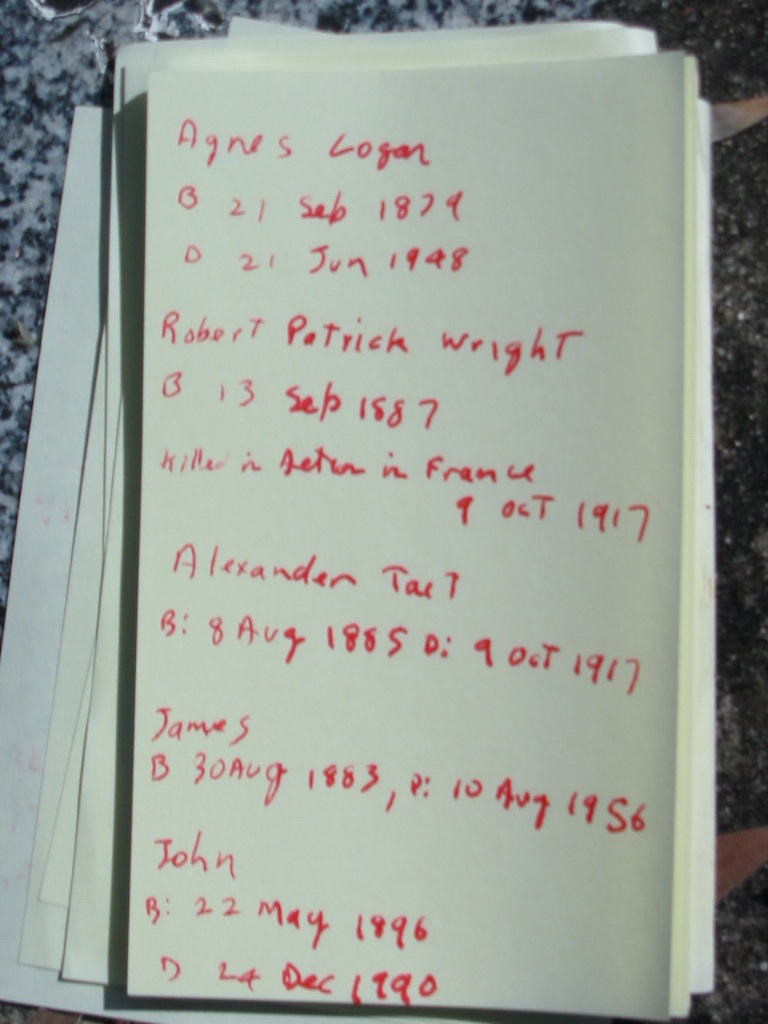 Agnes Logan
B 21 Sep 1879
D 21 Jun 1948
Robert Patrick Wright
B 13 Sep 1887
Killed in Action in France
9 OCT 1917
Alexander Tait
B: 8 Aug 1885 D: 9 Oct 1917
James
B 30 Aug 1883, D: 10 Aug 1956
John
B: 22 May 1896
D 24 Dec 1990